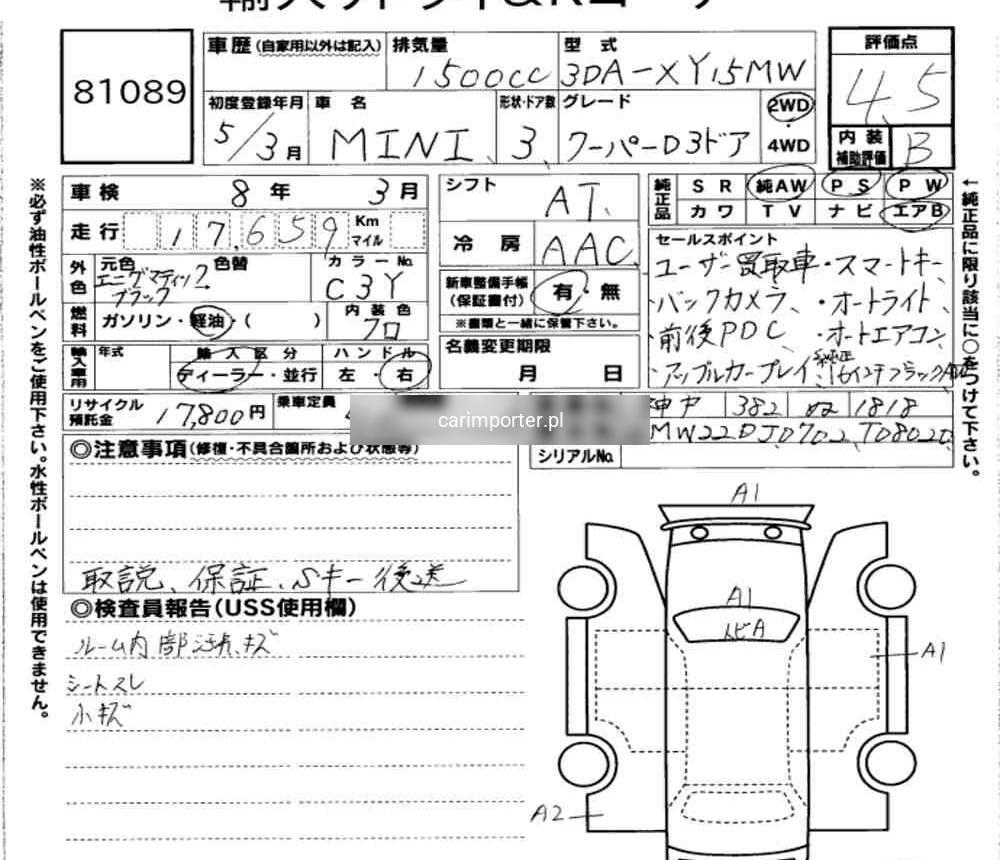 81089
車歴(自家用以外は記入) 排気量 型式 評価点
1500cc 3DA-XY15MW 4.5
初度登録年月 車名 形状・ドア数 グレード 2WD・4WD
5/3月 MINI 3 クーパーD3ドア
内装補助評価 B
車検 8年 3月
シフト AT
純正品 SR 純AW PS PW
カワ TV ナビ エアB
走行 17,659 Km マイル
冷房 AAC
セールスポイント
・ユーザー買取車・スマートキー
・バックカメラ、・オートライト
・前後PDC ・オートエアコン
・アップルカープレイ・純正16インチブラックAW
外色 元色 色替 カラーNo.
エニグマティックブラック C3Y
新車整備手帳(保証書付) 有・無
※書類と一緒に保管下さい。
燃料 ガソリン・軽油・( ) 内装色 クロ
名義変更期限 月 日
輸入車用 年式 輸入区分 ハンドル
ディーラー・並行 左・右
リサイクル預託金 17,800円 乗車定員
carimporter.pl
382 ぬ 1818
MW22DJ0702T08020
シリアルNo.
◎注意事項(修復・不具合箇所および状態等)
取説、保証、Sキー後送
◎検査員報告(USS使用欄)
ルーム内部汚れ、キズ
シートスレ
小キズ
A1
A1
トビA
A1
A2
※必ず油性ボールペンをご使用下さい。水性ボールペンは使用できません。
←純正品に限り該当に○をつけて下さい。